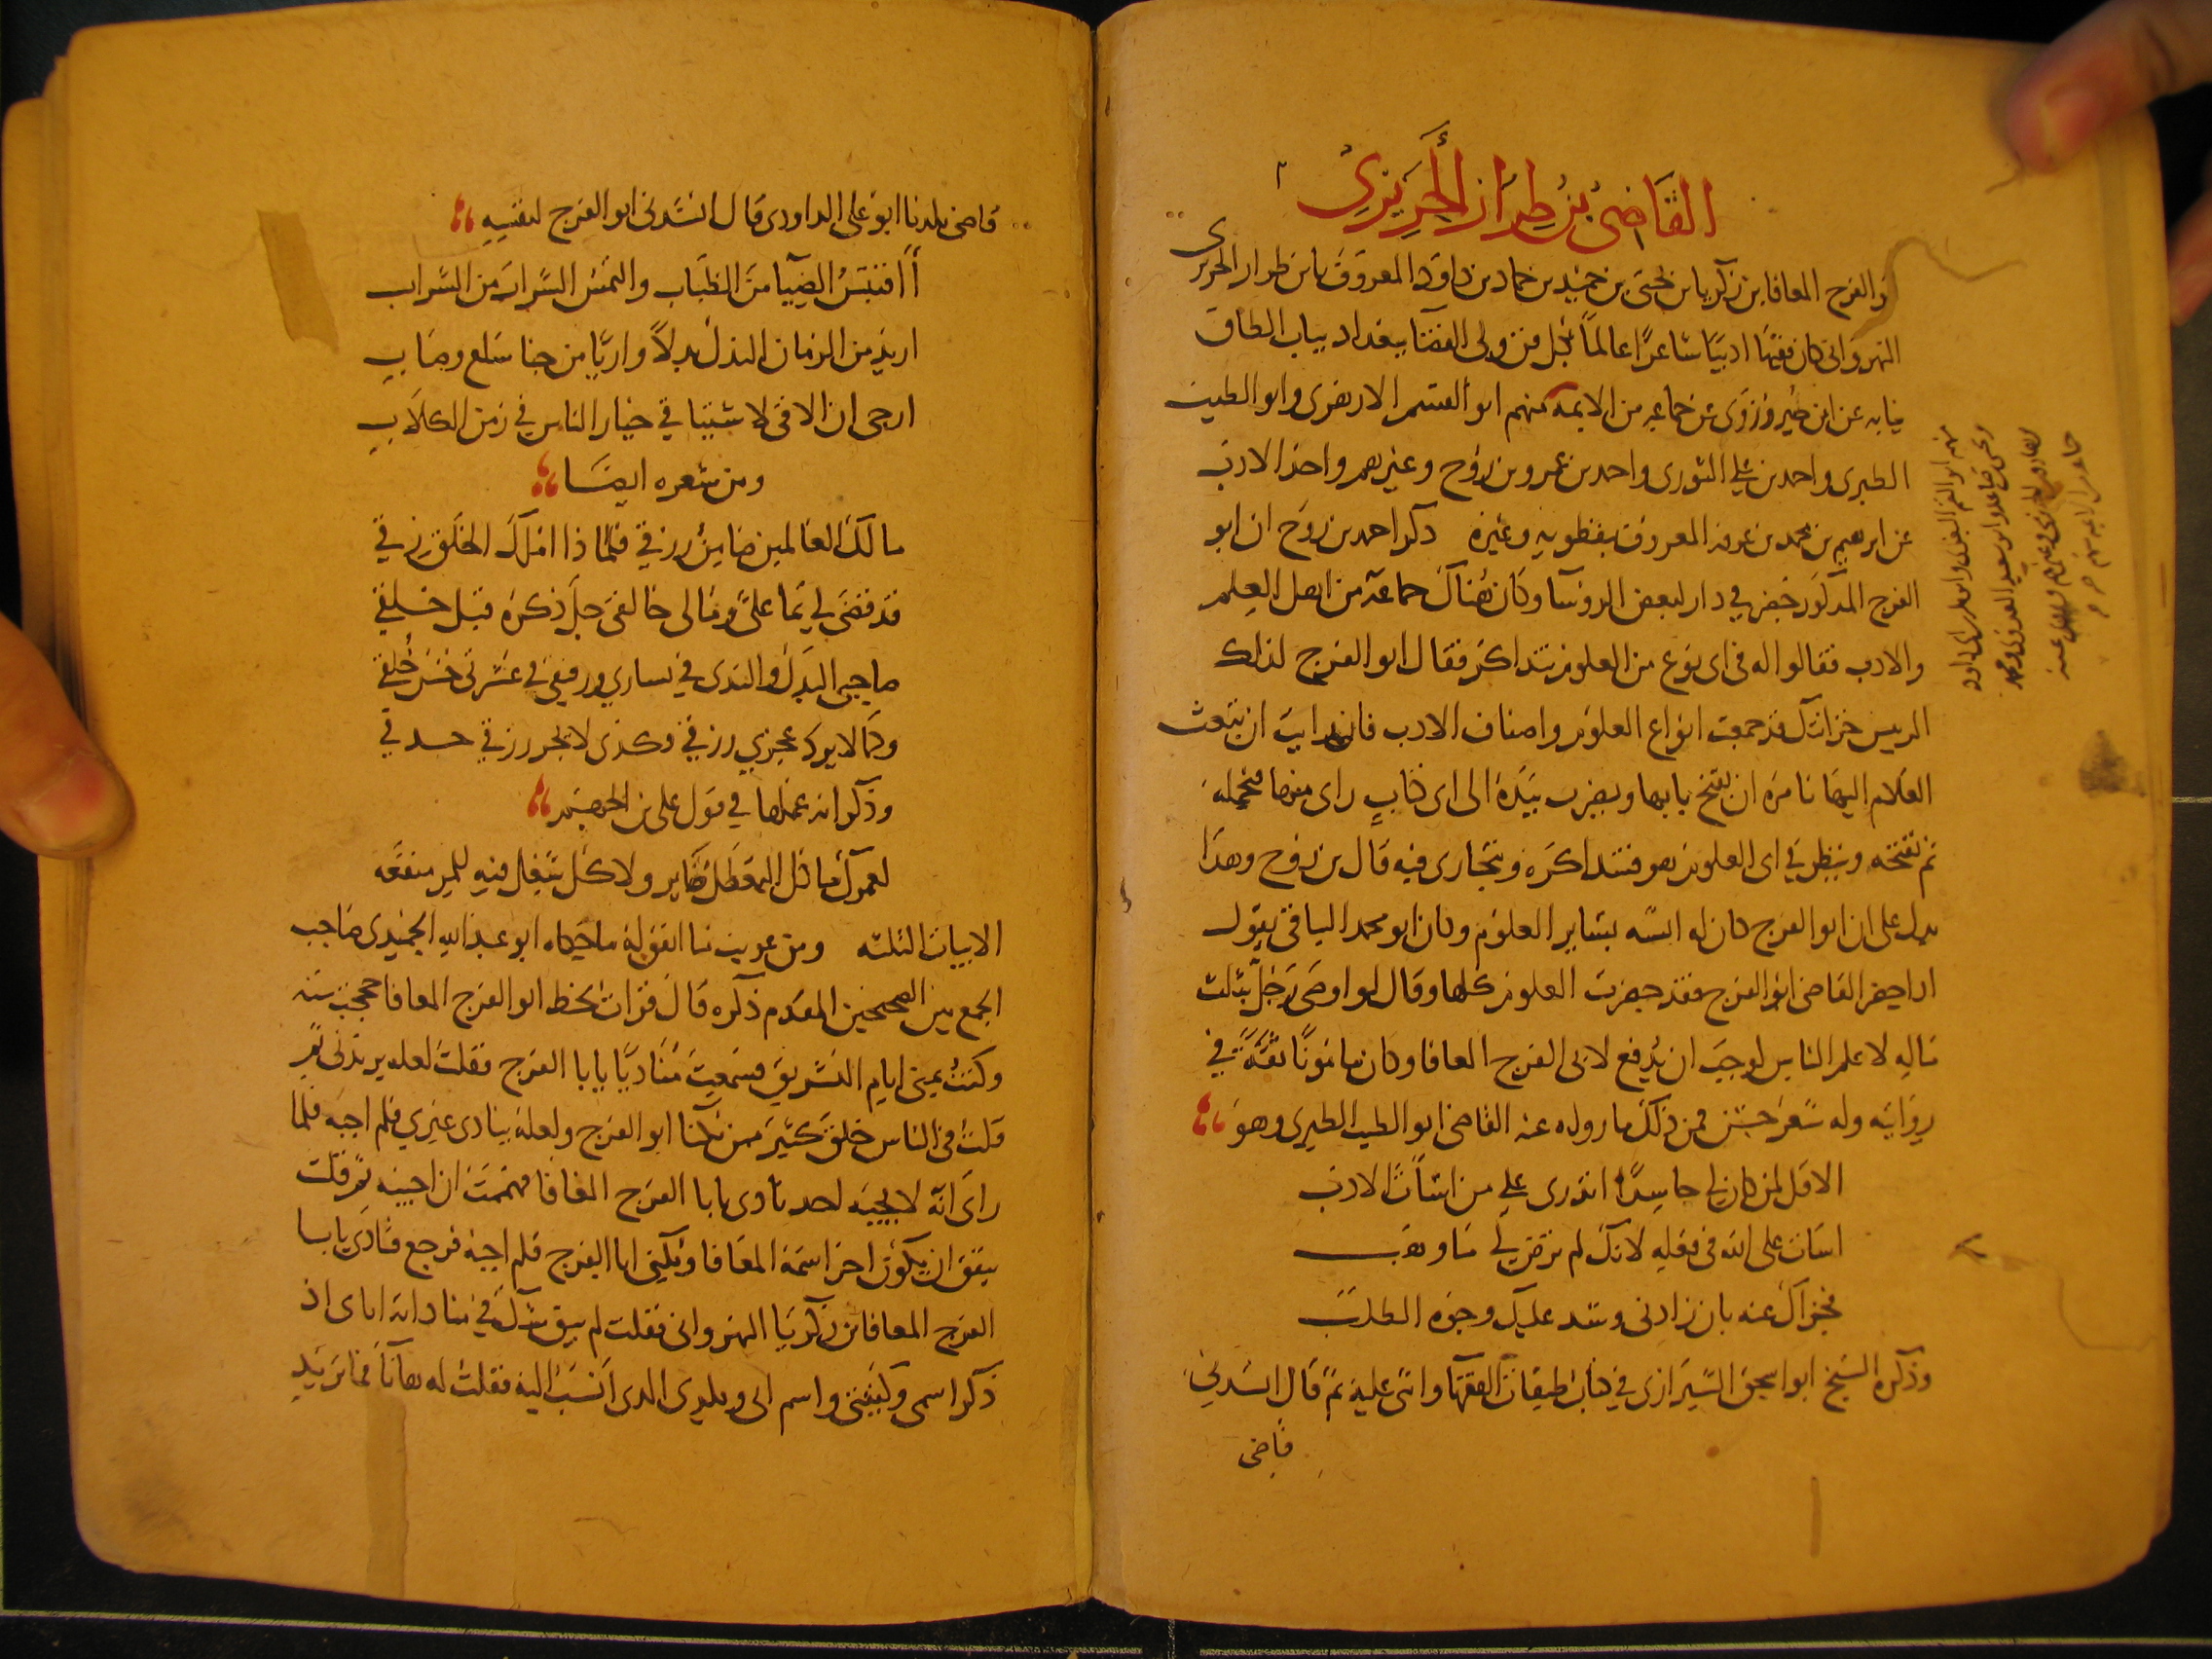 القاضي بن طرار الجريري
ابو الفرج المعافا بن زكريا بن يحيى بن حميد بن حماد بن داود المعروف بابن طرار الجريري
النهرواني كان فقيها اديبا شاعرا عالما بكل فن ولي القضا ببغداد بباب الطاق
نيابه عن ابن صير وروى عن جماعه من الايمه منهم ابو القسم الازهرى وابو الطيب
الطبرى واحمد بن علي الثورى واحمد بن عمرو بن روح وغيرهم واخذ الادب
عن ابرهيم بن محمد بن عرفه المعروف بنفطويه وغيره ذكر احمد بن روح ان ابو
الفرج المذكور حضر في دار لبعض الروسا وكان هناك جماعة من اهل العلم
والادب فقالوا له في اى نوع من العلوم نتذاكر فقال ابو الفرج لذلك
الريس خزانتك قد جمعت انواع العلوم واصناف الادب فان رايت ان تبعث
الغلام اليها تامره ان يفتح بابها ويضرب بيده الى اى كتاب راى منها فيحمله
ثم تفتحه وينظر في اى العلوم هو فنتذاكره ونتجارى فيه قال بن روح وهذا
يدل على ان ابو الفرج كان له انسه بساير العلوم وكان ابو محمد البافى يقول
اذا حضر القاضى ابو الفرج فقد حضرت العلوم كلها وقال لو اوصى رجل بثلث
ماله لاعلم الناس لوجب ان يدفع لابى الفرج المعافا وكان مامونا ثقة في
روايته وله شعر حسن فمن ذلك ما رواه عنه القاضى ابو الطيب الطبرى وهو
الا قل لمن كان لي حاسدا اتدرى على من اسات الادب
اسات على الله في فعله لانك لم ترض لي ما وهب
فجزاك عنه بان زادنى وسد عليك وجوه الطلب
وذكره الشيخ ابو اسحق الشيرازى في كتاب طبقات الفقها واثنى عليه ثم قال انشدني
قاضى
قاضى بلدنا ابو على الداودى قال انشدنى ابو الفرج لنفسه
أأقتبس الضيا من الضباب والتمس السراب من السراب
اريد من الزمان النذل بدلا واريا من جنا سلع وصاب
ارجى ان الاقى لاشتيا قي خيار الناس في زمن الكلاب
ومن شعره ايضا
مالك العالمين ضامن رزقي فلماذا املك الخلق رقي
قد قضى لي بما علي وما لي خالقى جل ذكره قبل خلقي
صاحبي البذل والندى في يسارى ورفيقي في عسرتى حسن خلقي
وكما لا يرد عجزي رزقي فكذى لا يجر رزقي حذقي
وذكر انه عملها في قول على بن الجهم
لعمرك ما كل التعطل ضاير ولا كل شغل فيه للمر منفعه
الابيات الثلثه ومن غريب ما اتفق له ما حكاه ابو عبد الله الحميدى صاحب
الجمع بين الصحيحين المقدم ذكره قال قرات بخط ابو الفرج المعافا حججت سنه
وكنت بمنى ايام التشريق فسمعت مناديا يا با الفرج فقلت لعله يريدنى ثم
قلت في الناس خلق كثير ممن يكنا ابو الفرج ولعله ينادى غيرى فلم اجبه فلما
راى انه لا يجيبه احد نادى يا با الفرج المعافا فهممت ان اجيبه ثم قلت
يتفق ان يكون اخر اسمه المعافا ويكني ابا الفرج فلم اجبه فرجع فنادى يا با
الفرج المعافا بن زكريا النهروانى فقلت لم يبق شك في مناداته اياى اذ
ذكر اسمى وكنيتى واسم ابى وبلدى الذى انسب اليه فقلت له هاانا فما تريد